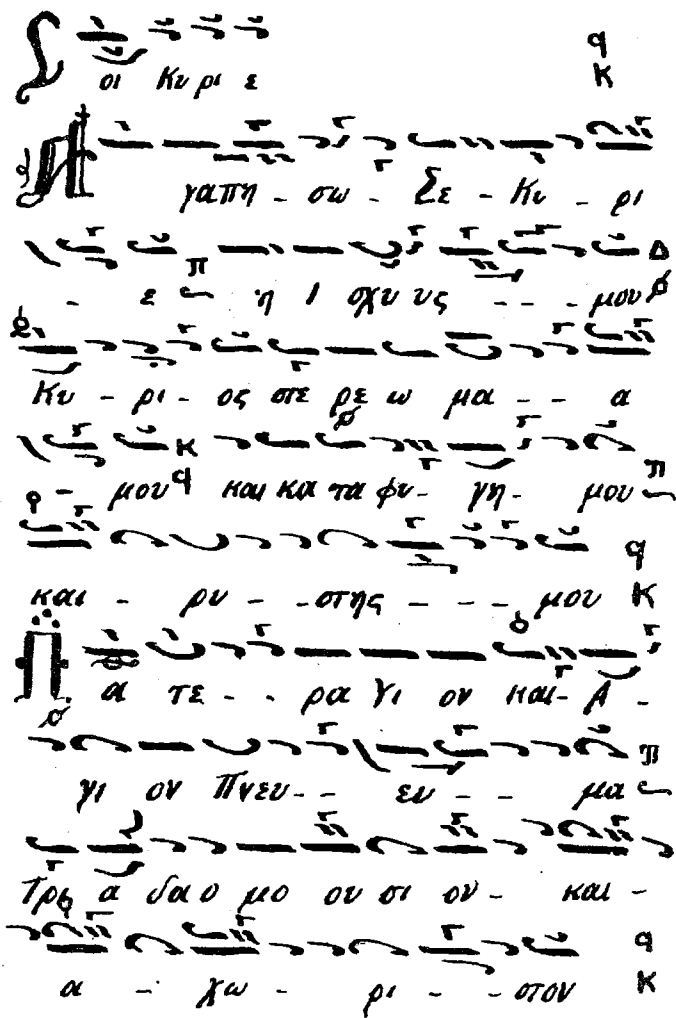 Σοι Κυ ρι ε
Αγαπη - σω - Σε - Κυ - ρι
- ε η Ι σχυ υς - - - μου
Κυ - ρι - ος στε ρε ω μα - - α
- μου και κα τα φυ - γη - μου
και - ρυ - - στης - - - μου
Πα τε - - ρα γι ον και - Α -
γι ον Πνευ - - ευ - - μα
Τρι α δα ο μο ου σι ον - και -
α - χω - ρι - - στον